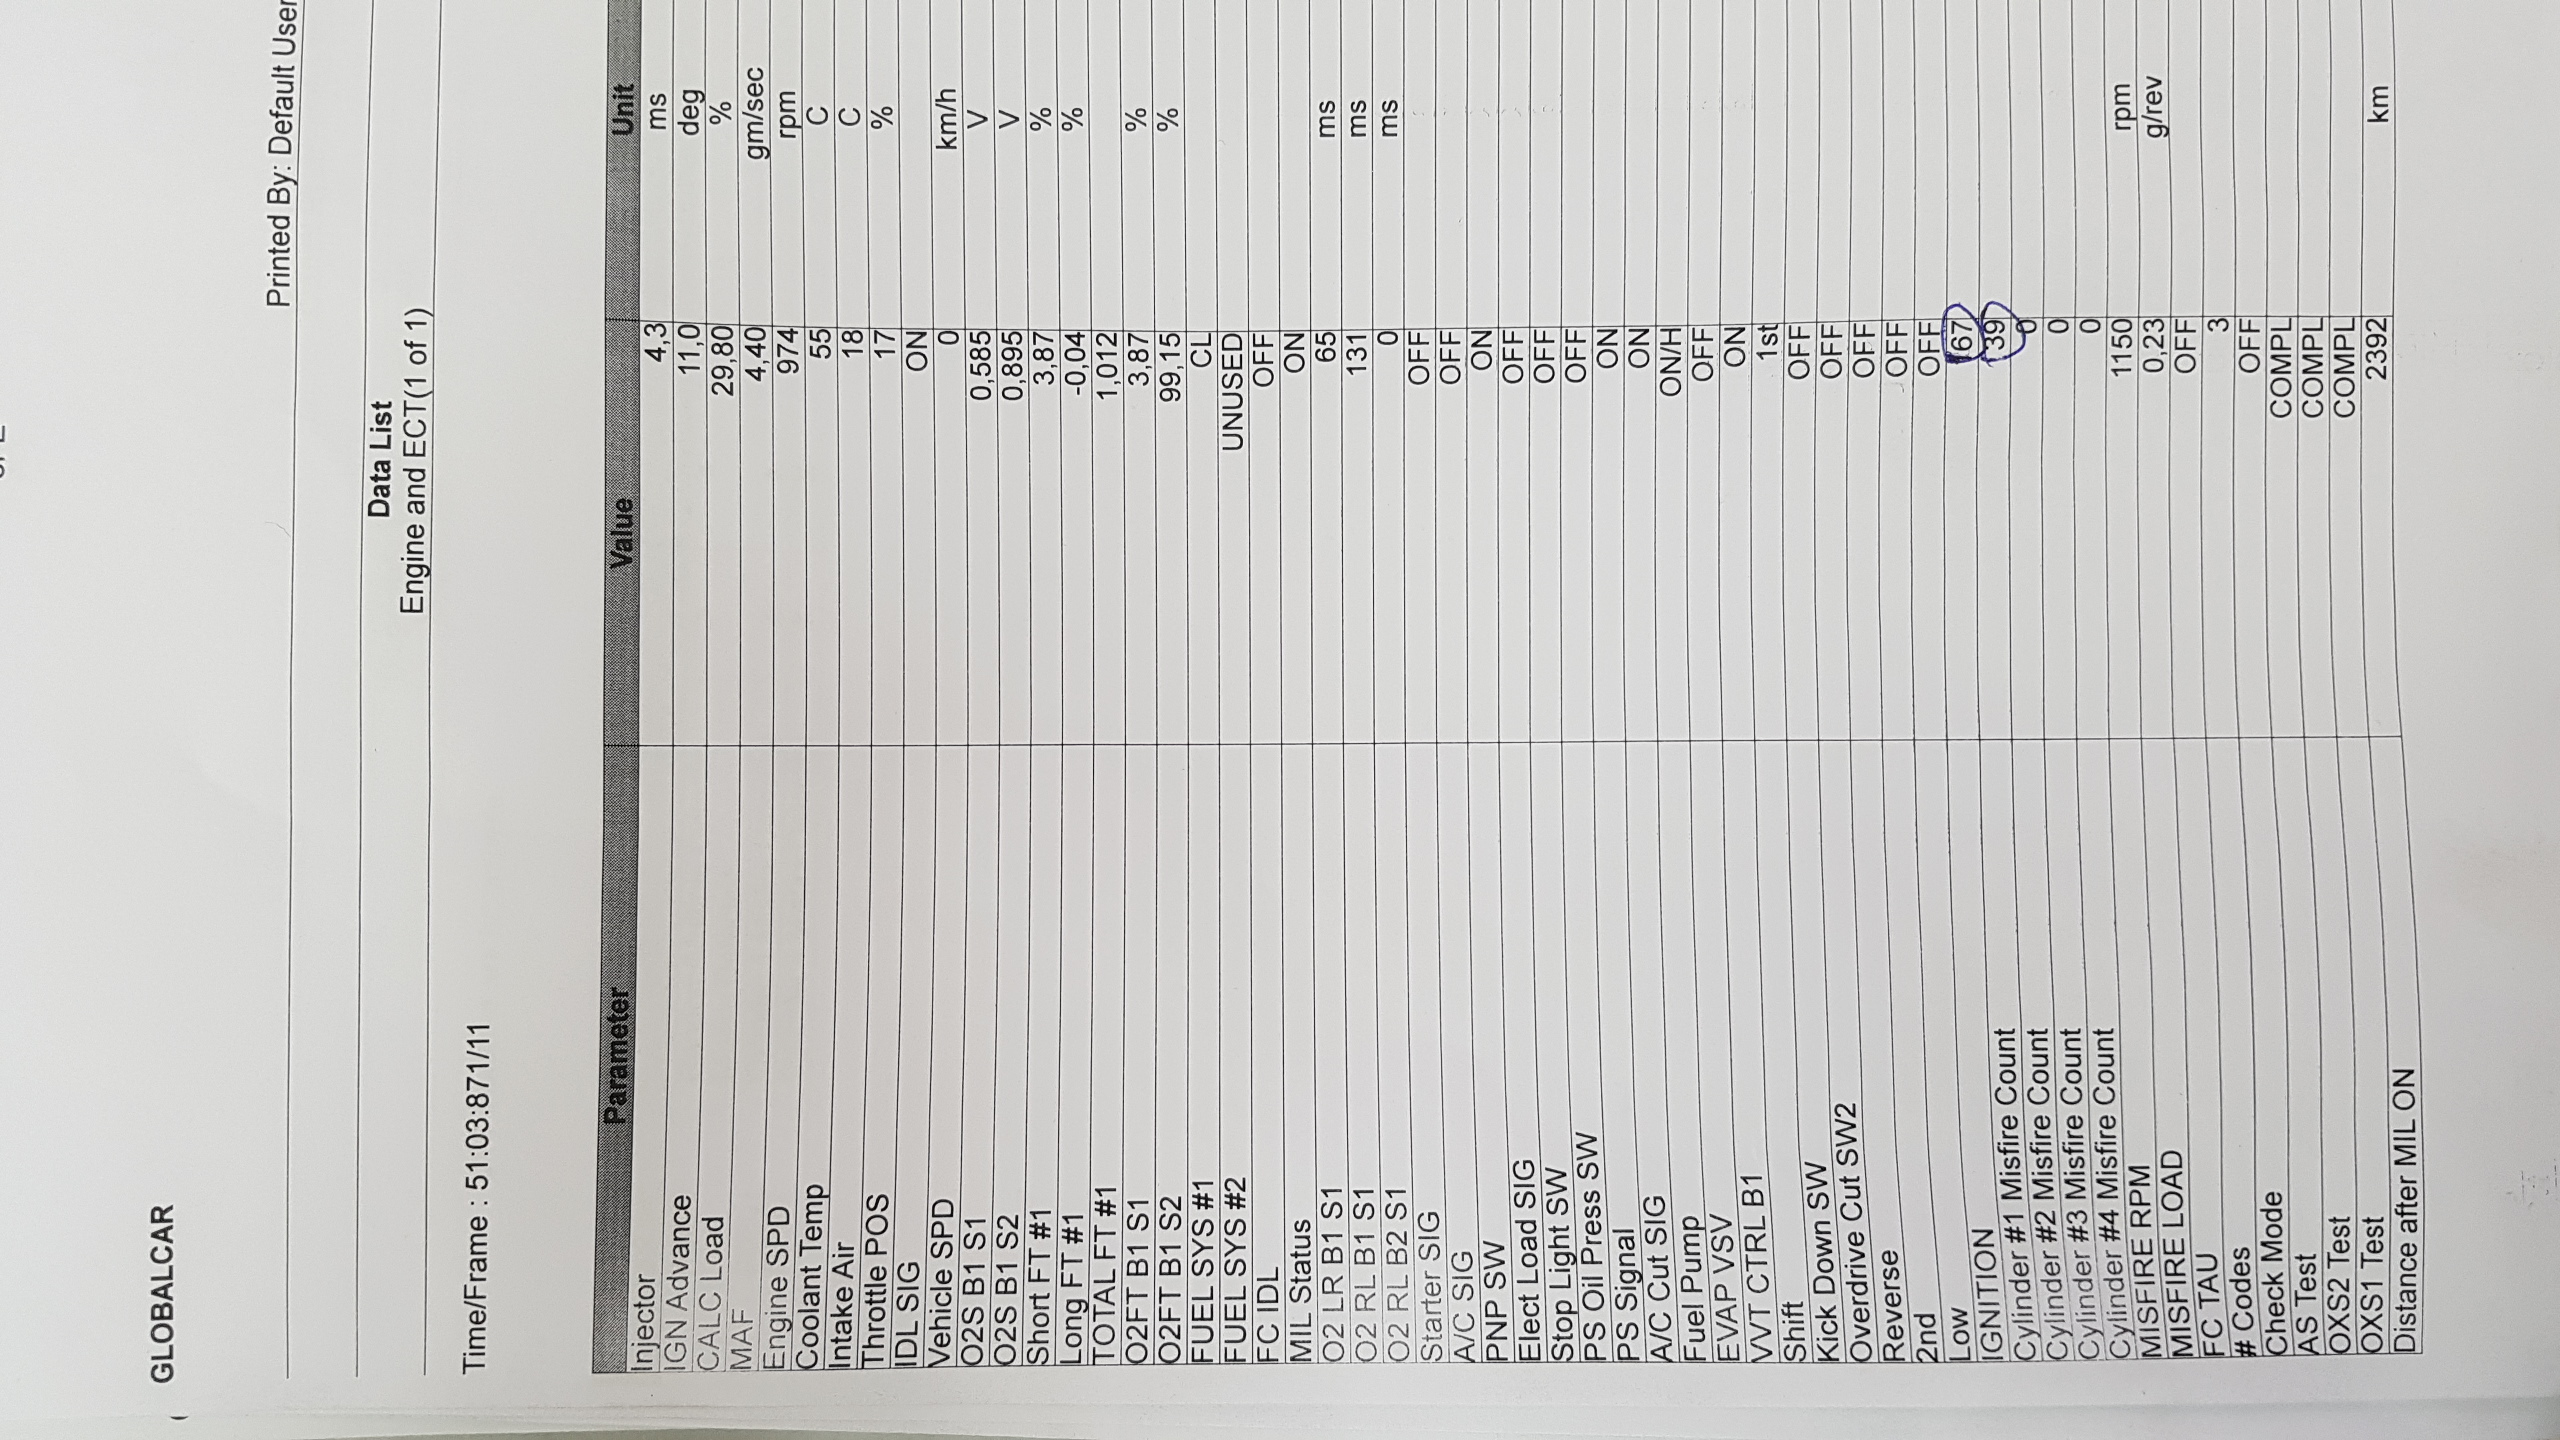 GLOBALCAR
Printed By: Default User
Data List
Engine and ECT(1 of 1)
Time/Frame : 51:03:871/11
Parameter Value Unit
Injector 4,3 ms
IGN Advance 11,0 deg
CALC Load 29,80 %
MAF 4,40 gm/sec
Engine SPD 974 rpm
Coolant Temp 55 C
Intake Air 18 C
Throttle POS 17 %
IDL SIG ON
Vehicle SPD 0 km/h
O2S B1 S1 0,585 V
O2S B1 S2 0,895 V
Short FT #1 3,87 %
Long FT #1 -0,04 %
TOTAL FT #1 1,012
O2FT B1 S1 3,87 %
O2FT B1 S2 99,15 %
FUEL SYS #1 CL
FUEL SYS #2 UNUSED
FC IDL OFF
MIL Status ON
O2 LR B1 S1 65 ms
O2 RL B1 S1 131 ms
O2 RL B2 S1 0 ms
Starter SIG OFF
A/C SIG OFF
PNP SW ON
Elect Load SIG OFF
Stop Light SW OFF
PS Oil Press SW OFF
PS Signal ON
A/C Cut SIG ON
Fuel Pump ON/H
EVAP VSV OFF
VVT CTRL B1 ON
Shift 1st
Kick Down SW OFF
Overdrive Cut SW2 OFF
Reverse OFF
2nd OFF
Low OFF
IGNITION 167
Cylinder #1 Misfire Count 39
Cylinder #2 Misfire Count 0
Cylinder #3 Misfire Count 0
Cylinder #4 Misfire Count 0
MISFIRE RPM 1150 rpm
MISFIRE LOAD 0,23 g/rev
FC TAU OFF
# Codes 3
Check Mode OFF
AS Test COMPL
OXS2 Test COMPL
OXS1 Test COMPL
Distance after MIL ON 2392 km